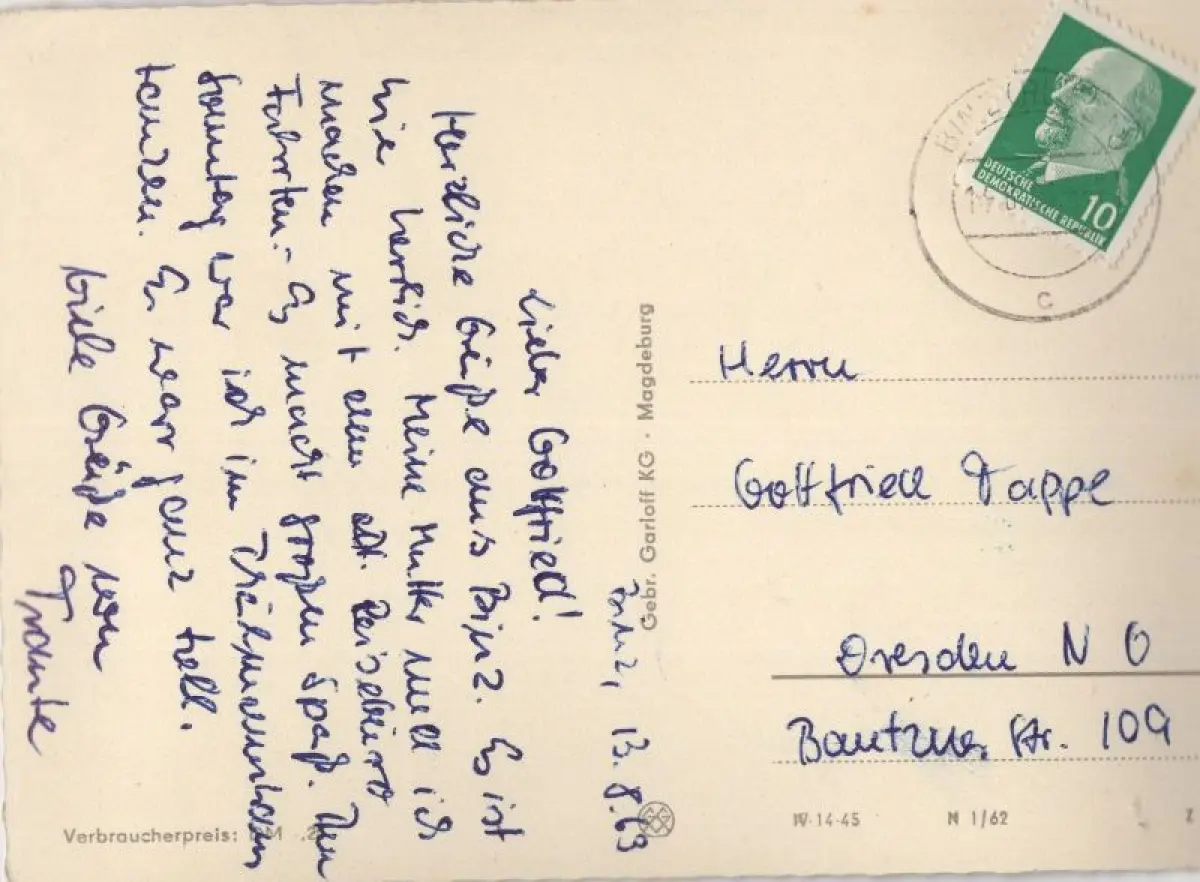 Binz, 13.8.63
Lieber Gottfried!
Herzliche Grüße aus Binz. Es ist
hier herrlich. Meine Mutter und ich
machen mit dem Reisebüro
Fahrten. Es macht großen Spaß. Am
Sonntag war ich im
tanzen. Es war ganz toll.
Viele Grüße von
Traute
Gebr. Garloff KG · Magdeburg
DEUTSCHE
DEMOKRATISCHE REPUBLIK
10
C
Herrn
Gottfried Tappe
Dresden N 6
Bautzner Str. 109
Verbraucherpreis:
IV-14-45
N 1/62